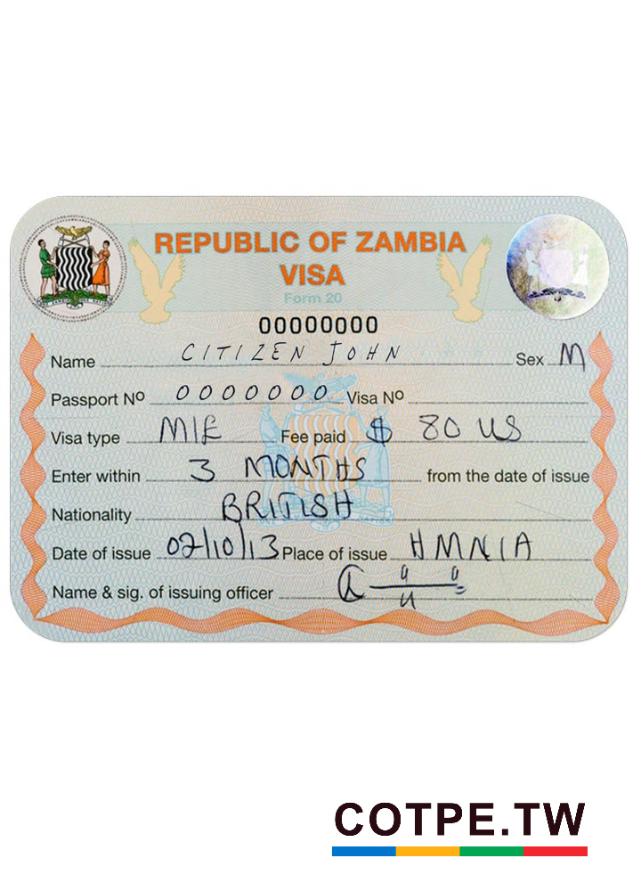 REPUBLIC OF ZAMBIA
VISA
Form 20
00000000
Name CITIZEN JOHN Sex M
Passport Nº 0000000 Visa Nº
Visa type M/E Fee paid $ 80 US
Enter within 3 MONTHS from the date of issue
Nationality BRITISH
Date of issue 02/10/13 Place of issue HMNIA
Name & sig. of issuing officer
COTPE.TW